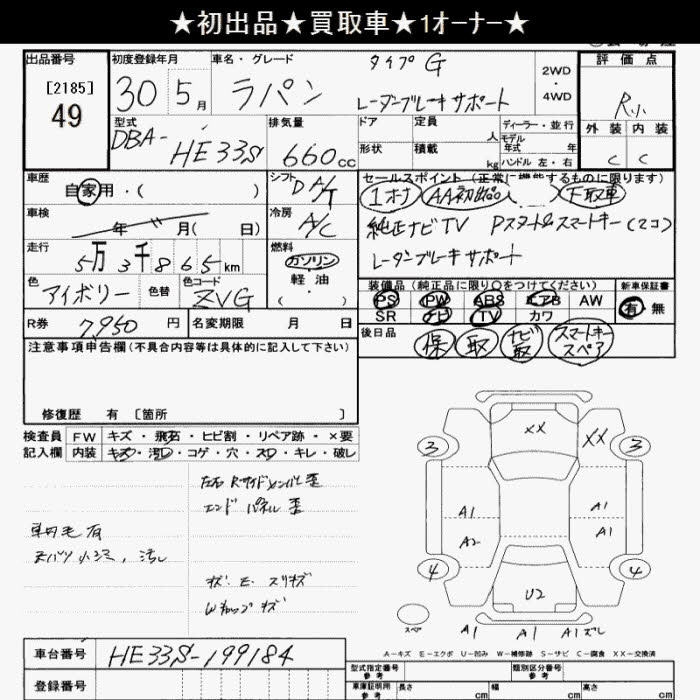 ★初出品★買取車★1オーナー★
出品番号
[2185]
49
初度登録年月
30 5月
車名・グレード
ラパン
タイプG
レーダーブレーキサポート
2WD
・
4WD
評価点
R小
外装 内装
C C
型式
DBA-
HE33S
排気量
660cc
ドア
形状
定員
人
積載
kg
ディーラー・並行
モデル
年式 年
ハンドル 左・右
車歴
自家用・( )
シフト
DA/T
セールスポイント(正常に機能するものに限ります)
1オナ AA初出品 下取車
純正ナビTV Pスタート&スマートキー(2コ)
レーダーブレーキサポート
車検
年 月( 日)
冷房
A/C
走行
5万3千865km
燃料
ガソリン
軽油
( )
色
アイボリー
色替
色コード
ZVG
装備品(純正品に限り○をつけてください)
PS PW ABS エアB AW
SR ナビ TV カワ
新車保証書
有 無
R券
7,950円
名変期限 月 日
後日品
保 取 ナビ取 スマートキースペア
注意事項申告欄(不具合内容等は具体的に記入して下さい)
修復歴 有 〔箇所 〕
検査員
記入欄
FW キズ・飛石・ヒビ割・リペア跡・×要
内装 キズ・汚レ・コゲ・穴・スレ・キレ・破レ
左右Rサイドメンバー歪
エンドパネル歪
車内毛有
汚レ
キズ・E・スリキズ
Wキャップキズ
XX
XX
3 3
A1 A1
A2 A1
4 4
U2
スペア
A1 A1 A1ズレ
A-キズ E-エクボ U-凹み W-補修跡 S-サビ C-腐食 XX-交換済
車台番号
HE33S-199184
登録番号
型式指定番号
参考
類別区分番号
参考
車庫証明用
参考
長さ cm
幅 cm
高さ cm